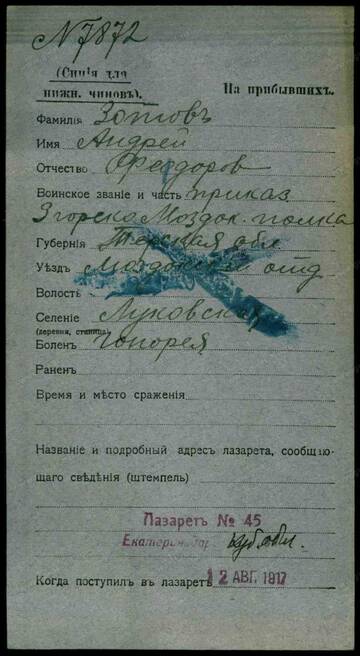 № 7872
(Синія для
нижн. чиновъ).
На прибывшихъ.
Фамилія Зотовъ
Имя Андрей
Отчество Феодоров
Воинское званіе и часть приказ
3 горско Моздок. полка
Губернія Терская обл
Уѣздъ Моздокскій отд
Волость
Селеніе Луковская
(деревня, станица)
Боленъ гонорея
Раненъ
Время и мѣсто сраженія
Названіе и подробный адресъ лазарета, сообщаю-
щаго свѣдѣнія (штемпель)
Лазаретъ № 45
Екатеринодар Куб. обл.
Когда поступилъ въ лазаретъ 12 АВГ. 1917